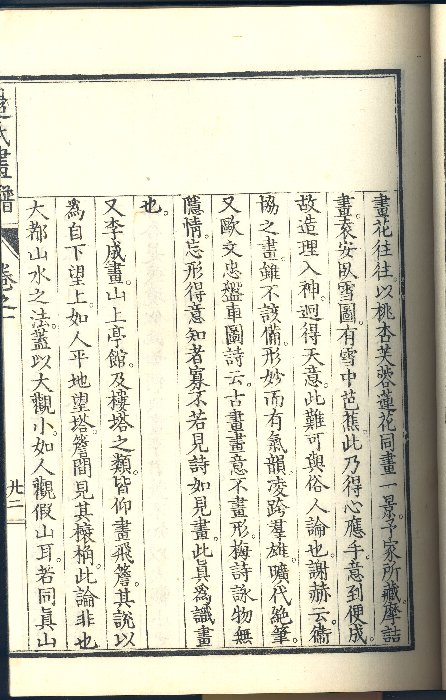 畫花往往以桃杏芙蓉蓮花同畫一景。予家所藏摩詰
畫。袁安臥雪圖。有雪中芭蕉。此乃得心應手。意到便成。
故造理入神。迥得天意。此難可與俗人論也。謝赫云。衛
協之畫。雖不該備形妙。而有氣韻。凌跨羣雄。曠代絕筆。
又歐文忠盤車圖詩云。古畫畫意不畫形。梅詩詠物無
隱情。忘形得意知者寡。不若見詩如見畫。此眞為識畫
也。
又李成畫。山上亭館。及樓塔之類。皆仰畫飛簷。其說以
為自下望上。如人平地望塔簷間見其榱桷。此論非也
大都山水之法。蓋以大觀小。如人觀假山耳。若同眞山
氏畫譜
卷之一
廿二